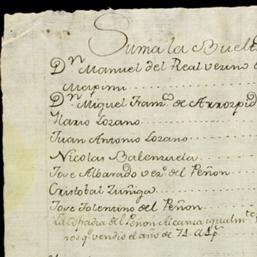 Suma la Buelt
Dn Manuel del Real vezino
Mapimi
Dn Miguel Franco de Arrospid
Ilario Lozano
Juan Antonio Lozano
Nicolas Balenzuela
Jose Albarado vezo del Peñon
Cristobal Zuñiga
Jose Tolentino del Peñon
La cofradia del Peñon Alcanza igualmte
que vendio el año de 71 a